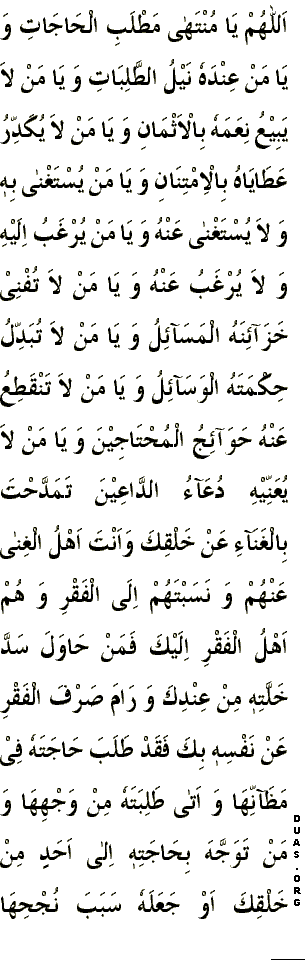 اَللّٰهُمَّ يَا مُنْتَهٰى مَطْلَبِ الْحَاجَاتِ وَ
يَا مَنْ عِنْدَهٗ نَيْلُ الطَّلِبَاتِ وَ يَا مَنْ لاَ
يَبِيْعُ نِعَمَهٗ بِالْاَثْمَانِ وَ يَا مَنْ لاَ يُكَدِّرُ
عَطَايَاهُ بِالْاِمْتِنَانِ وَ يَا مَنْ يُسْتَغْنٰى بِهٖ
وَ لاَ يُسْتَغْنٰى عَنْهُ وَ يَا مَنْ يُرْغَبُ اِلَيْهِ
وَ لاَ يُرْغَبُ عَنْهُ وَ يَا مَنْ لاَ تُفْنِىْ
خَزَآئِنَهُ الْمَسَآئِلُ وَ يَا مَنْ لاَ تُبَدِّلُ
حِكْمَتَهُ الْوَسَآئِلُ وَ يَا مَنْ لاَ تَنْقَطِعُ
عَنْهُ حَوَآئِجُ الْمُحْتَاجِيْنَ وَ يَا مَنْ لاَ
يُعَنِّيْهِ دُعَآءُ الدَّاعِيْنَ تَمَدَّحْتَ
بِالْغَنَآءِ عَنْ خَلْقِكَ وَاَنْتَ اَهْلُ الْغِنٰى
عَنْهُمْ وَ نَسَبْتَهُمْ اِلَى الْفَقْرِ وَ هُمْ
اَهْلُ الْفَقْرِ اِلَيْكَ فَمَنْ حَاوَلَ سَدَّ
خَلَّتِهٖ مِنْ عِنْدِكَ وَ رَامَ صَرْفَ الْفَقْرِ
عَنْ نَفْسِهٖ بِكَ فَقَدْ طَلَبَ حَاجَتَهٗ فِىْ
مَظَآنِّهَا وَ اَتٰى طَلِبَتَهٗ مِنْ وَجْهِهَا وَ
مَنْ تَوَجَّهَ بِحَاجَتِهٖ اِلٰى اَحَدٍ مِنْ
خَلْقِكَ اَوْ جَعَلَهٗ سَبَبَ نُجْحِهَا
DUAS.ORG